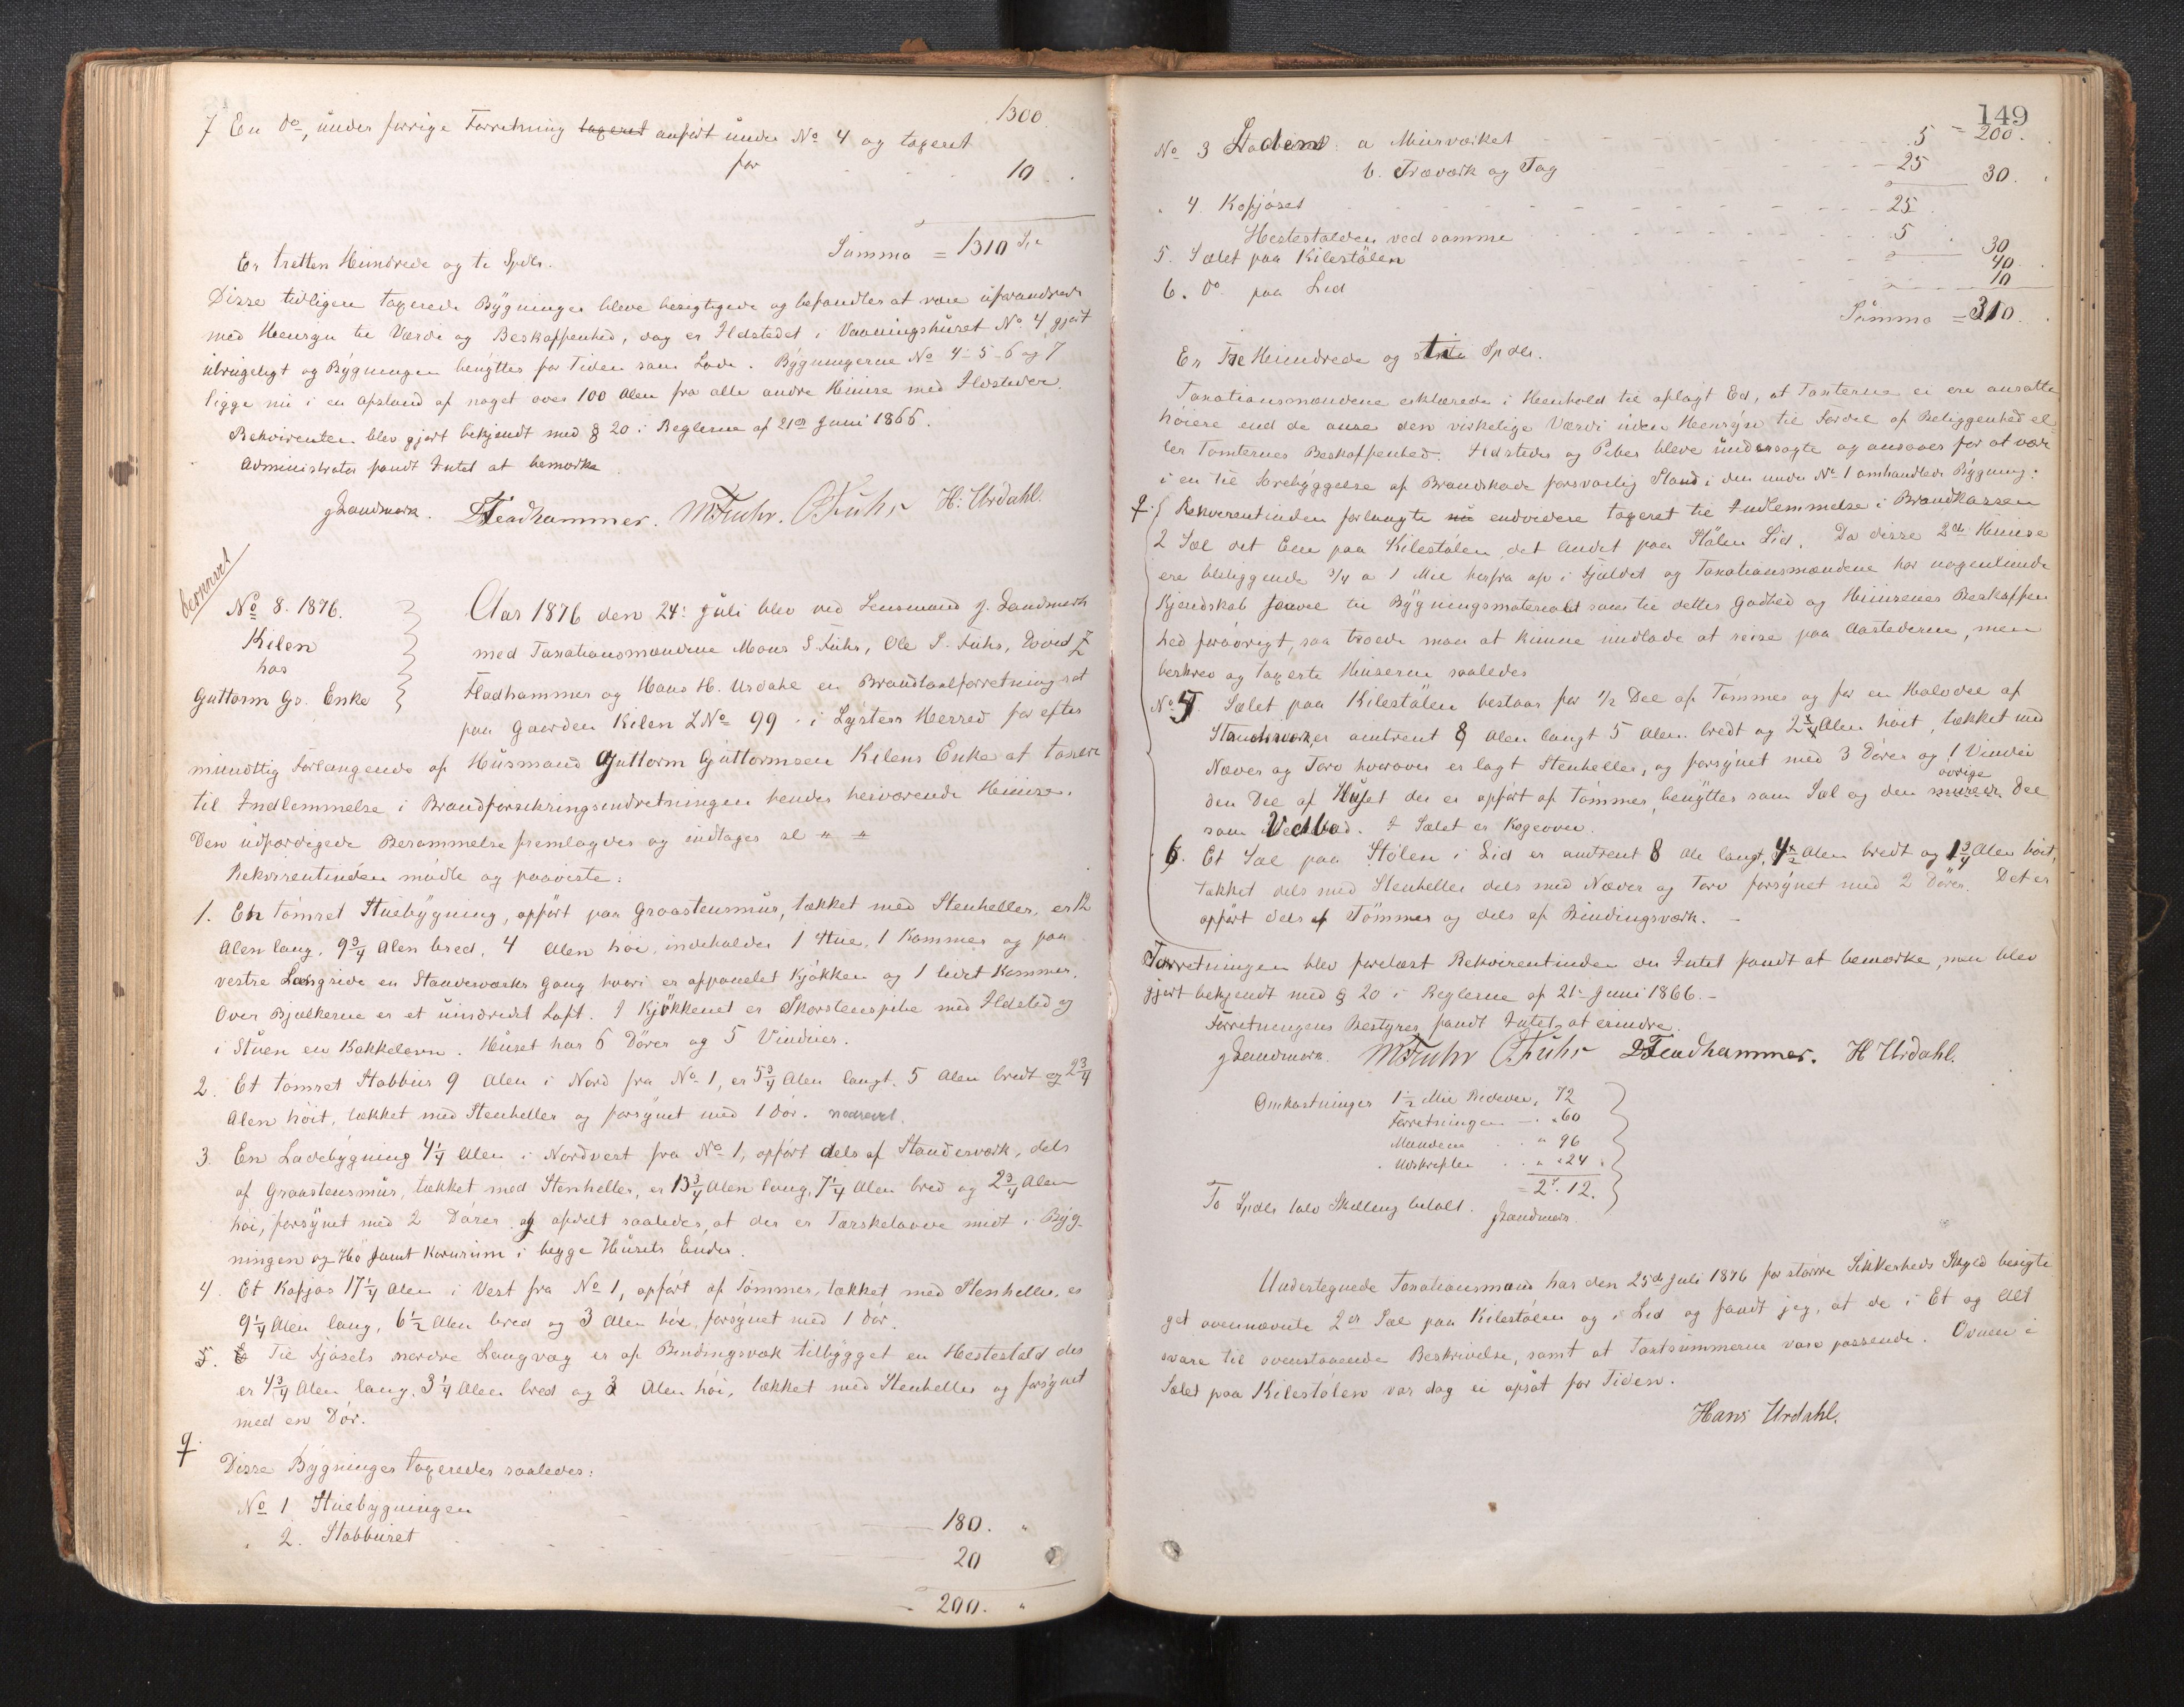 1300.
7 En do, under forrige Forretning taxeret anført under No 4 og taxeret
for 10.
Summa = 1310 Spd
Er tretten Hundrede og ti Spdlr.
Disse tidligere taxerede Bygninger bleve besigtigede og befandtes at være uforandrede
med Hensyn til Værdi og Beskaffenhed, dog er Ildstedet i Vaaningshuset No 4 gjort
ubrugeligt og Bygningen benyttes for Tiden som Lade. Bygningerne No 4-5-6 og 7
ligge nu i en Afstand af noget over 100 Alen fra alle andre Huuse med Ildsteder.
Rekvirenten blev gjort bekjendt med § 20 i Reglerne af 21de Juni 1866.
Administrator fandt Intet at bemærke
JLandmark. DFladhammer. MFuhr. OFuhr H: Urdahl.
berammet
No 8. 1876.
Kilen
hos
Guttorm Gs. Enke
Aar 1876 den 24: Juli blev ved Lensmand J. Landmark
med Taxationsmændene Mons S. Fuhr, Ole S. Fuhr, David
Fladhammer og Hans H. Urdahl en Brandtaxtforretning sat
paa Gaarden Kilen LNo 99 i Lysters Herred for efter
mundtlig Forlangende af Husmand Guttorm Guttormsen Kilens Enke at taxere
til Indlemmelse i Brandforsikringsindretningen hendes herværende Huuse.
Den udfærdigede Berammelse fremlagdes og indtages al " "
Rekvirentinden mødte og paaviste:
1. En tømret Stuebygning, opført paa Graastensmur, tækket med Stenheller, er 12
Alen lang, 9 3/4 Alen bred, 4 Alen høi, indeholder 1 Stue, 1 Kammer og paa
vestre Langside en Standerværks Gang hvori er afpanelet Kjøkken og 1 lidet Kammer.
Over Bjælkerne er et uindredet Loft. I Kjøkkenet er Skorstenspibe med Ildsted og
i Stuen en Kakkelovn. Huset har 6 Døre og 5 Vinduer.
2. Et tømret Stabbur 9 Alen i Nord fra No 1, er 5 3/4 Alen langt, 5 Alen bredt og 2 3/4
Alen høit, tækket med Stenheller og forsynet med 1 Dør. nedrevet.
3. En Ladebygning 4 1/4 Alen i Nordvest fra No 1, opført dels af Standerværk, dels
af Graastensmur, tækket med Stenheller, er 13 3/4 Alen lang, 7 1/4 Alen bred og 2 3/4 Alen
høi, forsynet med 2 Døre og afdelt saaledes, at der er Tærskelaave midt i Byg-
ningen og Hø samt Kornrum i begge Husets Ender.
4. Et Kofjøs 17 1/4 Alen i Vest fra No 1, opført af Tømmer, tækket med Stenheller, er
9 1/4 Alen lang, 6 1/2 Alen bred og 3 Alen høi, forsynet med 1 Dør.
5. Til Fjøsets nordre Langvæg er af Bindingsværk tilbygget en Hestestald der
er 4 3/4 Alen lang, 3 1/4 Alen bred og 3 Alen høi, tækket med Stenheller og forsynet
med en Dør.
Disse Bygninger taxeredes saaledes:
No 1 Stuebygningen 180. "
" 2. Stabburet 20
200. "
149
= 200.
No 3 Laden: a Muurværket 5
b. Træværk og Tag 25 30.
" 4. Kofjøset 25
Hestestalden ved samme 5 30
5. Sælet paa Kilestølen 40
6. do paa Lid 10
Summa = 310.
Er Tre Hundrede og ti Spdlr.
Taxationsmændene erklærede i Henhold til aflagt Ed, at Taxterne ei ere ansatte
høiere end de anse den virkelige Værdi uden Hensyn til Fordel af Beliggenhed el
ler Tomternes Beskaffenhed. Ildsteder og Piber bleve undersøgte og ansaaes for at være
i en til Forebyggelse af Brandskade forsvarlig Stand i den under No 1 omhandlede Bygning.
Rekvirentinden forlangte nu endvidere taxeret til Indlemmelse i Brandkassen
2 Sæl det Ene paa Kilestølen, det Andet paa Stølen Lid. Da disse 2de Huuse
ere beliggende 3/4 a 1 Miil herfra op i Fjeldet og Taxationsmændene har nogenlunde
Kjendskab saavel til Bygningsmaterialet som til dettes Godhed og Huusenes Beskaffen
hed forøvrigt, saa troede man at kunne undlade at reise paa Aastederne, men
beskrev og taxerte Huuserne saaledes
No 5 Sælet paa Kilestølen bestaar for 1/2 Del af Tømmer og for en Halvdel af
Standerværk, er omtrent 8 Alen langt 5 Alen bredt og 2 3/4 Alen høit, tækket med
Næver og Torv hvorover er lagt Stenheller, og forsynet med 3 Døre og 1 Vindue
den Del af Huset der er opført af Tømmer, benyttes som Sæl og den øvrige Del
som Vedbod. I Sælet er Kogeovn.
6. Et Sæl paa Stølen i Lid er omtrent 8 Al langt, 4 1/2 Alen bredt og 1 3/4 Alen høit,
tækket dels med Stenheller dels med Næver og Torv forsynet med 2 Døre. Det er
opført dels af Tømmer og dels af Bindingsværk. —
Forretningen blev forelæst Rekvirentinden der Intet fandt at bemærke, men blev
gjort bekjendt med § 20 i Reglerne af 21de Juni 1866. —
Forretningens Bestyrer fandt Intet at erindre.
JLandmark. MFuhr OFuhr DFladhammer. H Urdahl.
Omkostninger 1 1/2 Miil 72
Forretningen " 60
Mændene " 96
Udskrifter " 24
= 2 . 12.
To Spdlr tolv Skilling betalt. JLandmark
Undertegnede Taxationsmand har den 25de Juli 1876 for større Sikkerheds Skyld besigti
get ovennævnte 2de Sæl paa Kilestølen og i Lid og fandt jeg, at de i Et og Alt
svare til ovenstaaende Beskrivelse, samt at Taxtsummerne vare passende. Ovnen i
Sælet paa Kilestølen var dog ei opsat for Tiden.
Hans Urdahl.